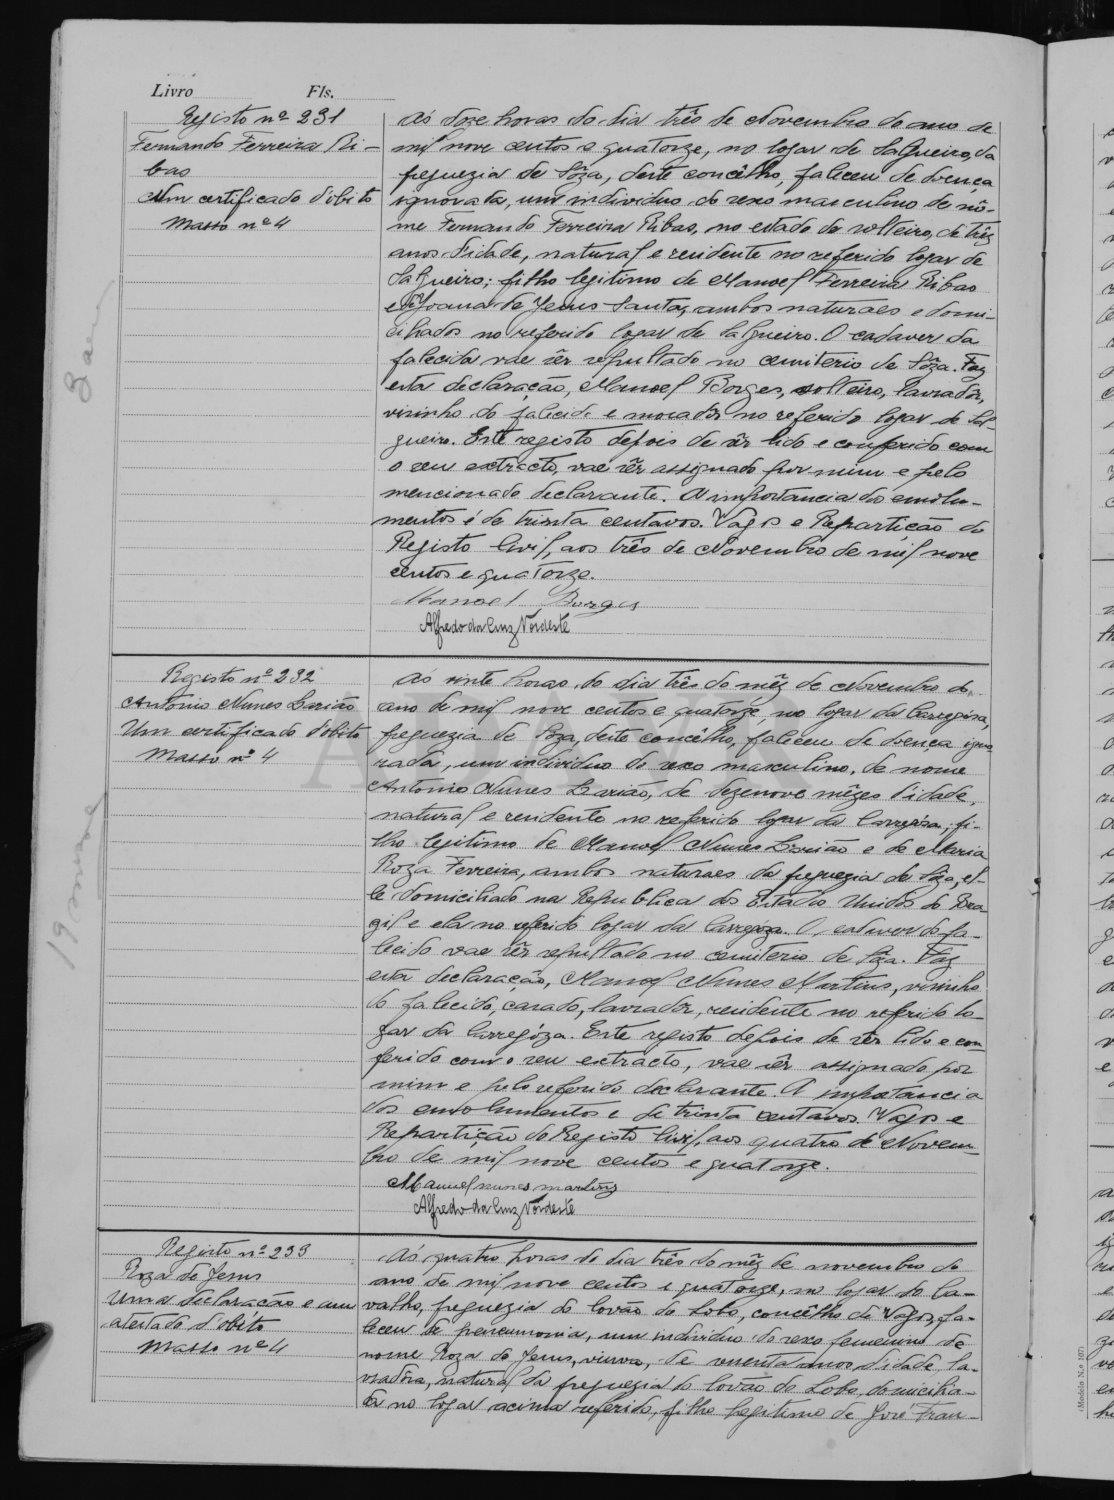 Livro Fls.
Registo nº 231
Fernando Ferreira Ri-
bas
Um certificado d'obito
Masso nº 4
3 anos
Ás doze horas do dia três de Novembro do ano de
mil nove centos e quatorze, no logar de Salgueiro, da
freguezia de Sôza, deste concêlho, faleceu de doença
ignorada, um individuo do sexo masculino de nô-
me Fernando Ferreira Ribas, no estado de solteiro, de três
anos d'idade, natural e residente no referido logar de
Salgueiro; filho legitimo de Manoel Ferreira Ribas
e de Joana de Jesus Santa, ambos naturaes e domi-
ciliados no referido logar de Salgueiro. O cadaver da
falecida vae sêr sepultado no cemiterio de Sôza. Faz
esta declaração, Manoel Borges, solteiro, lavrador,
visinho do falecido e morador no referido logar de Sal-
gueiro. Este registo depois de sêr lido e conferido com
o seu extracto, vae sêr assignado por mim e pelo
mencionado declarante. A importancia dos emolu-
mentos é de trinta centavos. Vagos e Repartição do
Registo Civil, aos três de Novembro de mil nove
centos e quatorze.
Manoel Borges
Alfredo da Cruz Nordeste
Registo nº 232
Antonio Nunes Barião
Um certificado d'obito
Masso nº 4
19 mezes
Ás vinte horas do dia três do mês de Novembro do
ano de mil nove centos e quatorze, no logar da Carregosa,
freguezia de Soza, deste concêlho, faleceu de doença igno-
rada, um individuo do sexo masculino, de nome
Antonio Nunes Barião, de dezenove mêzes d'idade,
natural e residente no referido logar da Carregósa; fi-
lho legitimo de Manoel Nunes Barião e de Maria
Roza Ferreira, ambos naturaes da freguezia de Sôza, el-
le domiciliado na Republica dos Estados Unidos do Bra-
zil e ela no referido logar da Carregoza. O cadaver do fa-
lecido vae sêr sepultado no cemiterio de Sôza. Faz
esta declaração, Manoel Nunes Martins, visinho
do falecido, casado, lavrador, residente no referido lo-
gar da Carregóza. Este registo depois de sêr lido e con-
ferido com o seu extracto, vae sêr assignado por
mim e pelo referido declarante. A importancia
dos emolumentos e de trinta centavos. Vagos e
Repartição do Registo Civil, aos quatro de Novem-
bro de mil nove centos e quatorze.
Manuel nunes martins
Alfredo da Cruz Nordeste
Registo nº 233
Roza de Jesus
Uma declaração e um
atestado d'obito
Masso nº 4
Ás quatro horas do dia três do mês de novembro do
ano de mil nove centos e quatorze, no logar do Ca-
valho, freguezia de Covão do Lobo, concêlho de Vagos, fa-
leceu de pneumonia, um individuo do sexo femenino de
nome Roza de Jesus, viuva, de anos d'idade, la-
vradôra, natural da freguezia de Covão do Lobo, domicilia-
da no logar acima referido, filha legitima de José Fran-
(Modelo N.º 107)